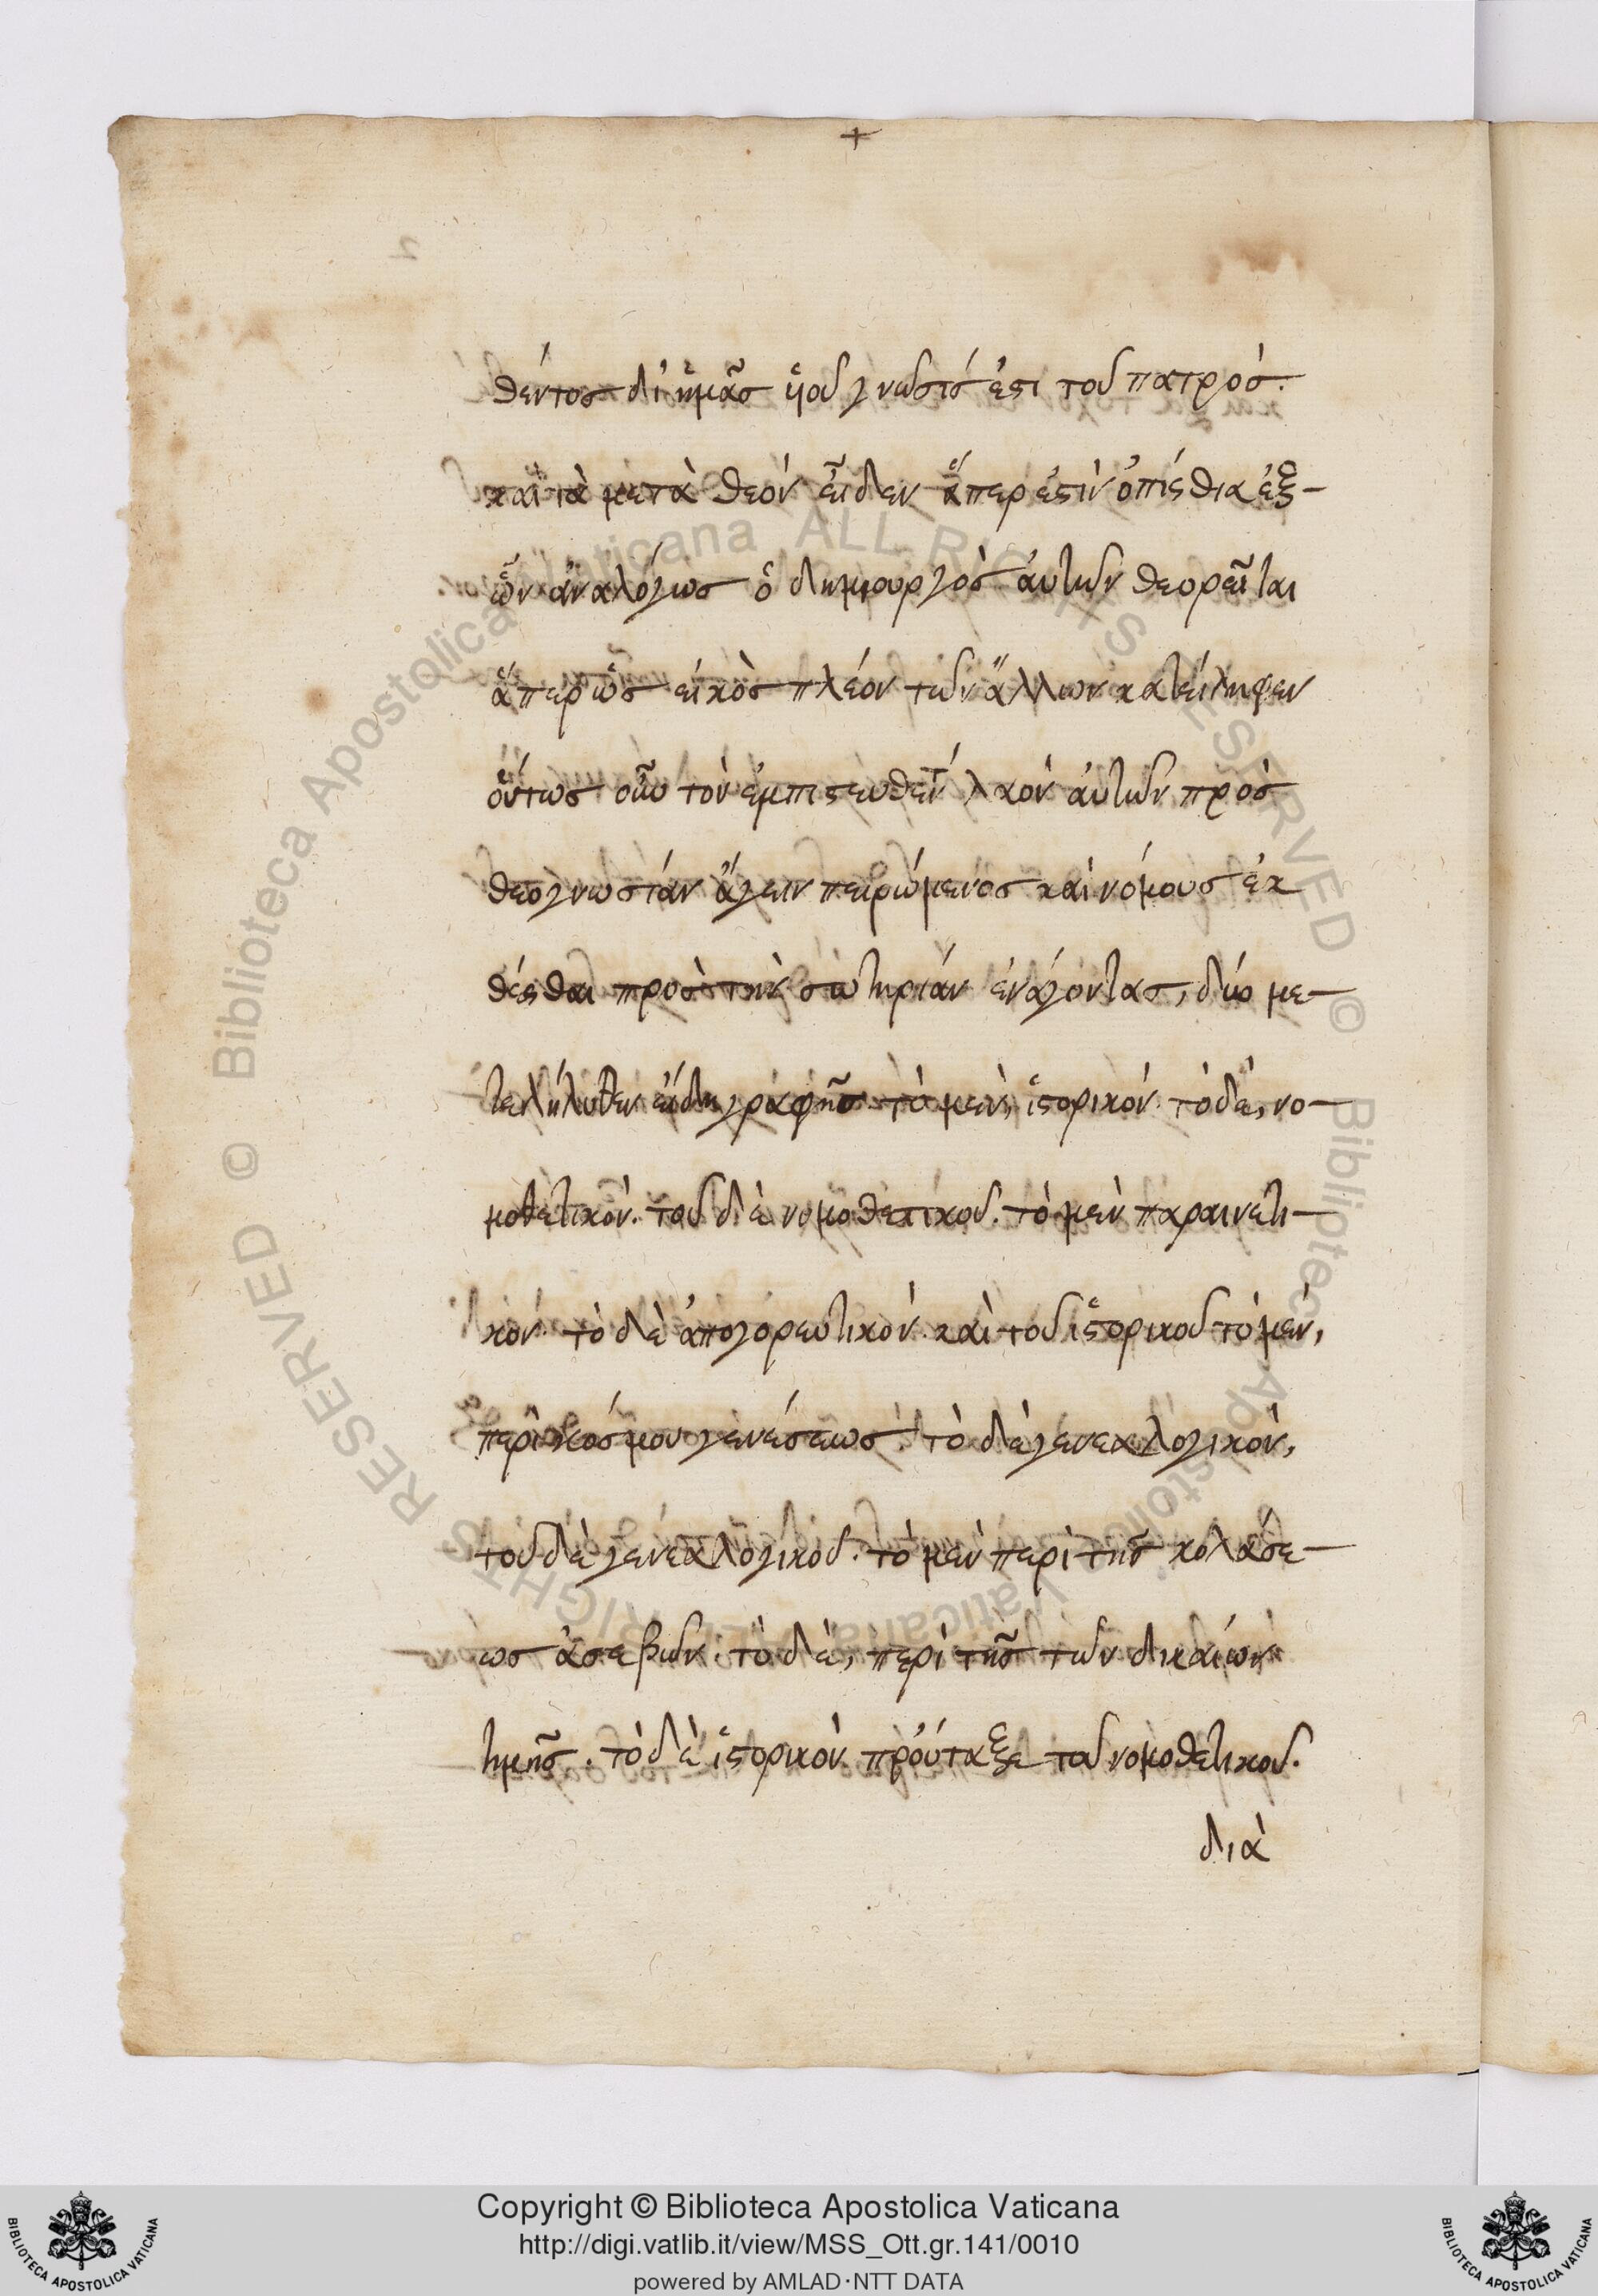 +
θέντος δι' ἡμᾶς ἡ οὗ γνῶσίς ἐστι τοῦ πατρός.
καὶ τὰ μετὰ θεὸν εἶδεν ἅπερ ἐστὶν ὀπίσθια ἐξ-
ὧν ἀναλόγως ὁ δημιουργὸς αὐτῶν θεορεῖται
ἅπερ ὡς εἰκὸς πλέον τῶν ἄλλων κατείληφεν
οὕτως οὖν τὸν ἐμπιστευθέντ λαὸν αὐτῶν πρὸς
θεογνωσίαν ἄγειν πειρώμενος καὶ νόμους ἐκ
θέσθαι πρὸς τὴν σωτηρίαν ἐνάγοντας, δύο με-
τελήλυθεν εἴδη γραφῆς τὸ μὲν, ἱστορικόν. τὸ δὲ, νο-
μοθετικόν. τοῦ δὲ νομοθετικοῦ. τὸ μὲν παραινετι-
κόν. τὸ δὲ ἀπογορευτικόν. καὶ τοῦ ἱστορικοῦ τὸ μὲν,
περὶ κόσμου γενέσεως. τὸ δὲ γενεαλογικόν,
τοῦ δὲ γενεαλογικοῦ. τὸ μὲν περὶ τῆς κολάσε-
ως ἀσεβῶν. τὸ δὲ, περὶ τῆς τῶν δικαίων
τιμῆς. τὸ δὲ ἱστορικὸν προύταξε τοῦ νομοθετικοῦ.
διὰ
© Biblioteca Apostolica Vaticana ALL RIGHTS RESERVED © Biblioteca Apostolica Vaticana ALL RIGHTS RESERVED
Copyright © Biblioteca Apostolica Vaticana
http://digi.vatlib.it/view/MSS_Ott.gr.141/0010
powered by AMLAD·NTT DATA
BIBLIOTECA APOSTOLICA VATICANA
BIBLIOTECA APOSTOLICA VATICANA